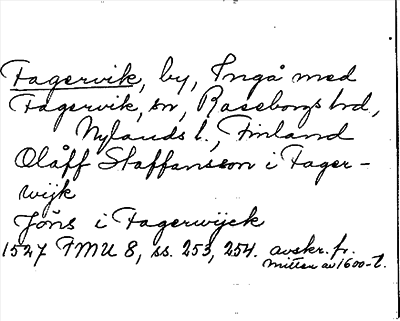 Fagervik, by, Ingå med
Fagervik, sn, Raseborgs hrd,
Nylands l., Finland
Olåff Staffansson i Fager-
wijk
Jöns i Fagerwijck
1527 FMU 8, ss. 253, 254. avskr. fr.
mitten av 1600-t.